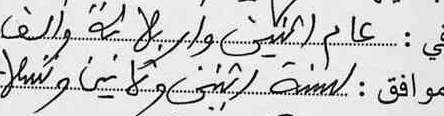 في : عام اثنين واربلائة والف
موافق : لسنة اثنين وثمانين وتسعـ